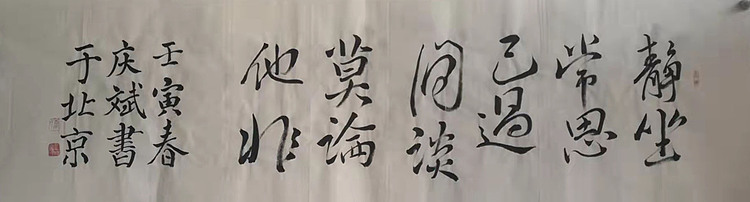 靜坐
常思
己過
閒談
莫論
他非
壬寅春
庆斌書
于北京